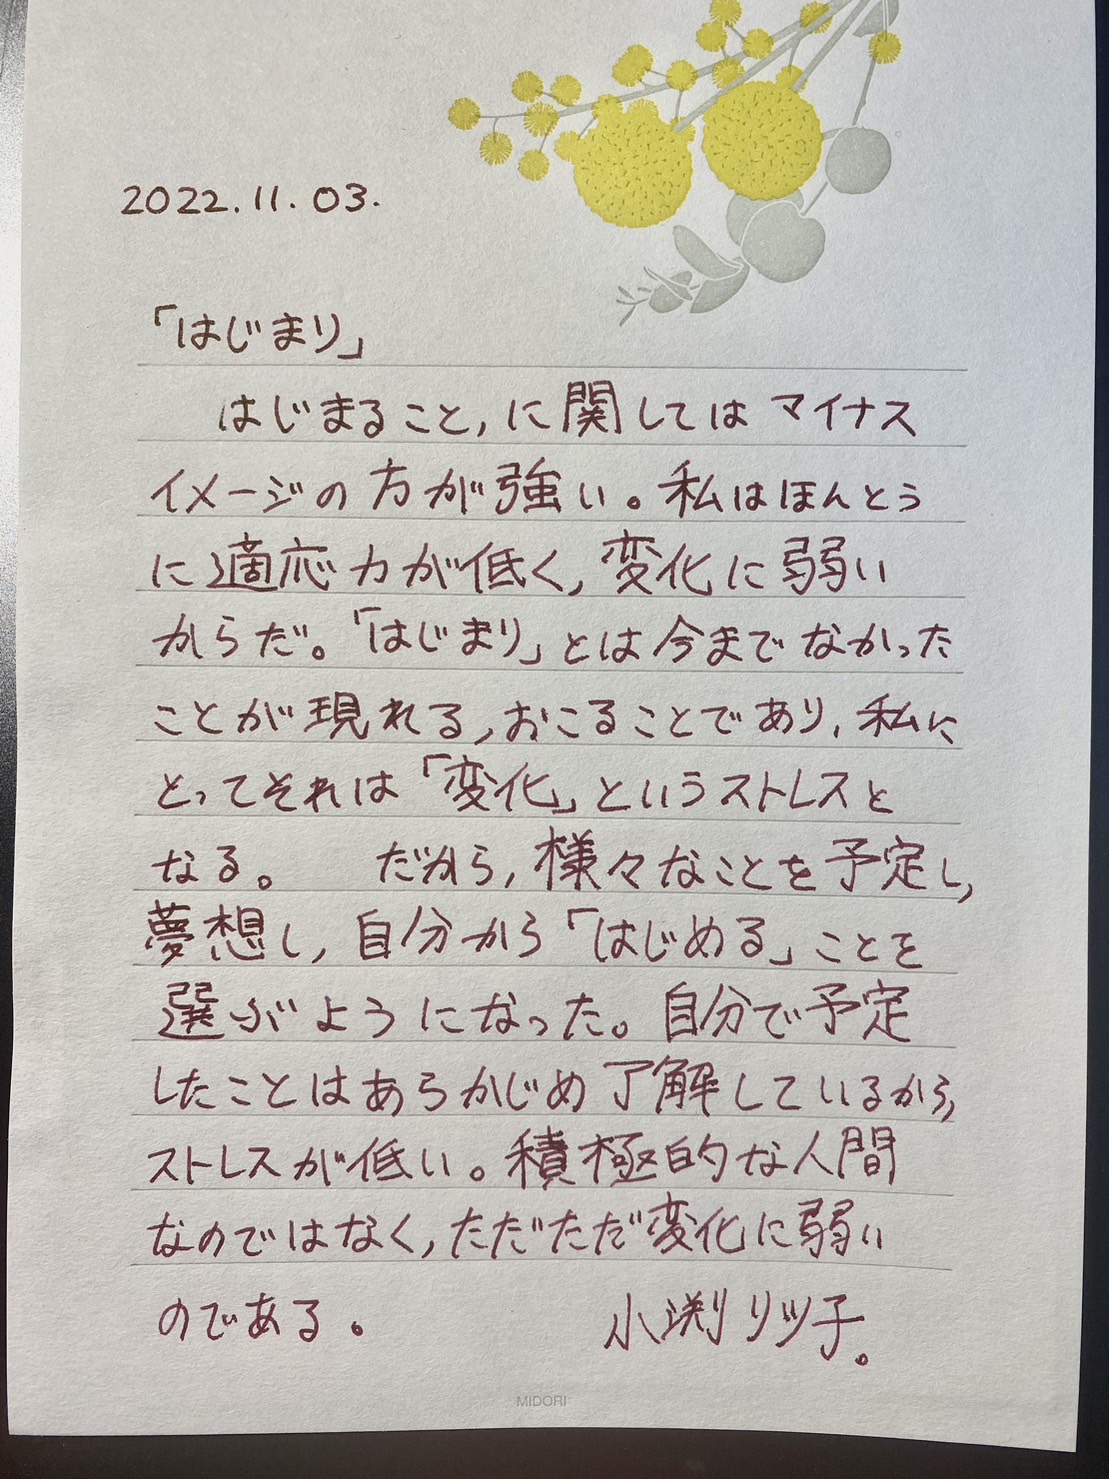 2022.11.03.
「はじまり」
はじまること,に関してはマイナス
イメージの方が強い。私はほんとう
に適応力が低く,変化に弱い
からだ。「はじまり」とは今までなかった
ことが現れる,おこることであり,私に
とってそれは「変化」というストレスと
なる。 だから,様々なことを予定し,
夢想し,自分から「はじめる」ことを
選ぶようになった。自分で予定
したことはあらかじめ了解しているから,
ストレスが低い。積極的な人間
なのではなく,ただただ変化に弱い
のである。 小渕リツ子。
MIDORI